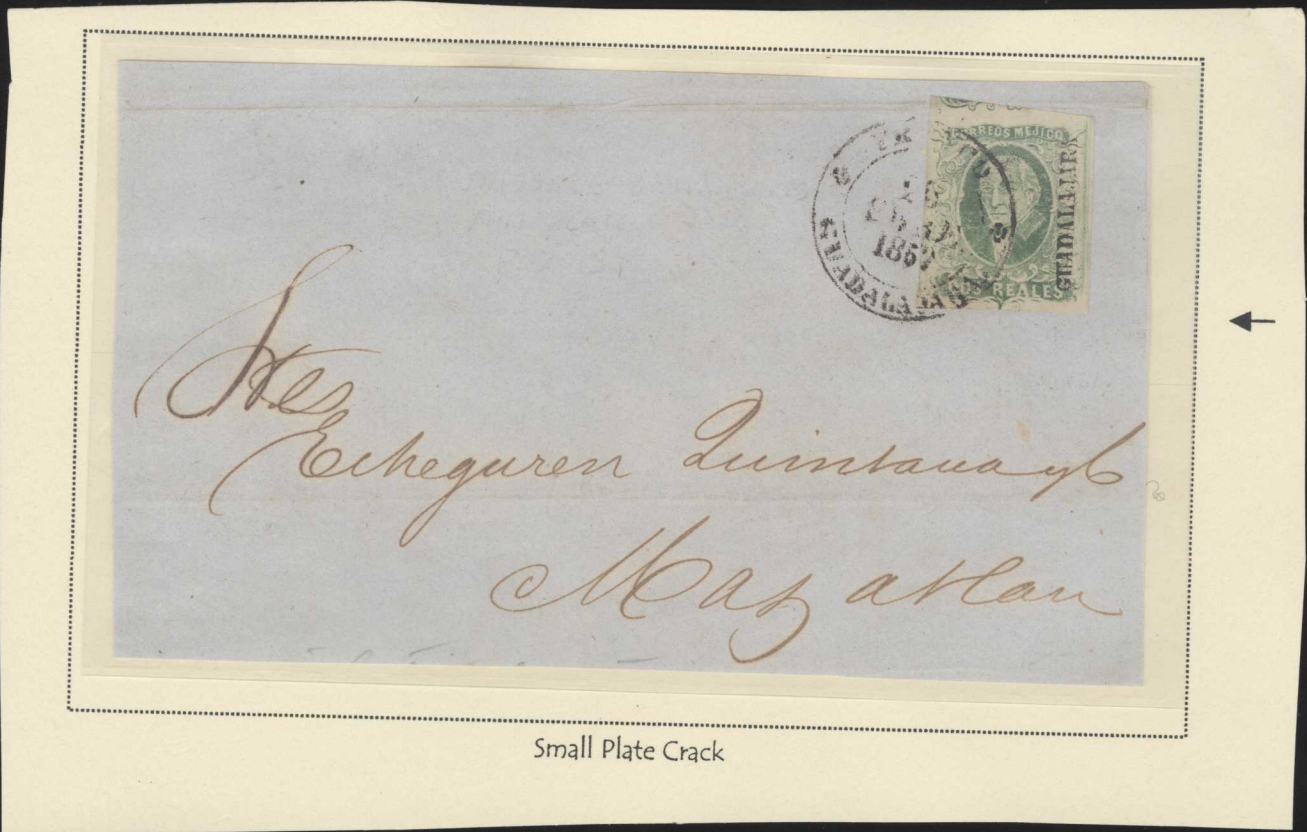 CORREOS MEJICO
GUADALAJARA
REALES
GUADALAJARA
Sres
Echeguren Quintana y C
Mazatlan
Small Plate Crack